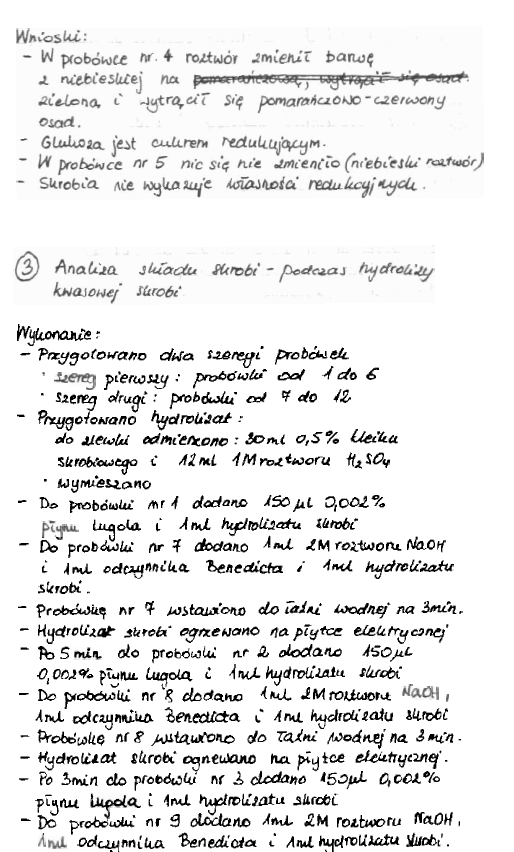 Wnioski:
- W probówce nr. 4 roztwór zmienił barwę
z niebieskiej na pomarańczową, wytrącił się osad.
zieloną i wytrącił się pomarańczowo-czerwony
osad.
- Glukoza jest cukrem redukującym.
- W probówce nr 5 nic się nie zmieniło (niebieski roztwór)
- Skrobia nie wykazuje własności redukcyjnych.
③ Analiza składu skrobi - podczas hydrolizy
kwasowej skrobi
Wykonanie:
- Przygotowano dwa szeregi probówek
· szereg pierwszy: probówki od 1 do 6
· szereg drugi: probówki od 7 do 12
- Przygotowano hydrolizat:
do zlewki odmierzono: 30ml 0,5% kleiku
skrobiowego i 12ml 1M roztworu H₂SO₄
· wymieszano
- Do probówki nr 1 dodano 150 μl 0,002%
płynu Lugola i 1ml hydrolizatu skrobi
- Do probówki nr 7 dodano 1ml 2M roztworu NaOH
i 1ml odczynnika Benedicta i 1ml hydrolizatu
skrobi.
- Probówkę nr 7 wstawiono do łaźni wodnej na 3min.
- Hydrolizat skrobi ogrzewano na płytce elektrycznej
- Po 5 min do probówki nr 2 dodano 150μl
0,002% płynu Lugola i 1ml hydrolizatu skrobi
- Do probówki nr 8 dodano 1ml 2M roztworu NaOH,
1ml odczynnika Benedicta i 1ml hydrolizatu skrobi
- Probówkę nr 8 wstawiono do łaźni wodnej na 3min.
- Hydrolizat skrobi ogrzewano na płytce elektrycznej.
- Po 3min do probówki nr 3 dodano 150μl 0,002%
płynu Lugola i 1ml hydrolizatu skrobi
- Do probówki nr 9 dodano 1ml 2M roztworu NaOH,
1ml odczynnika Benedicta i 1ml hydrolizatu skrobi.